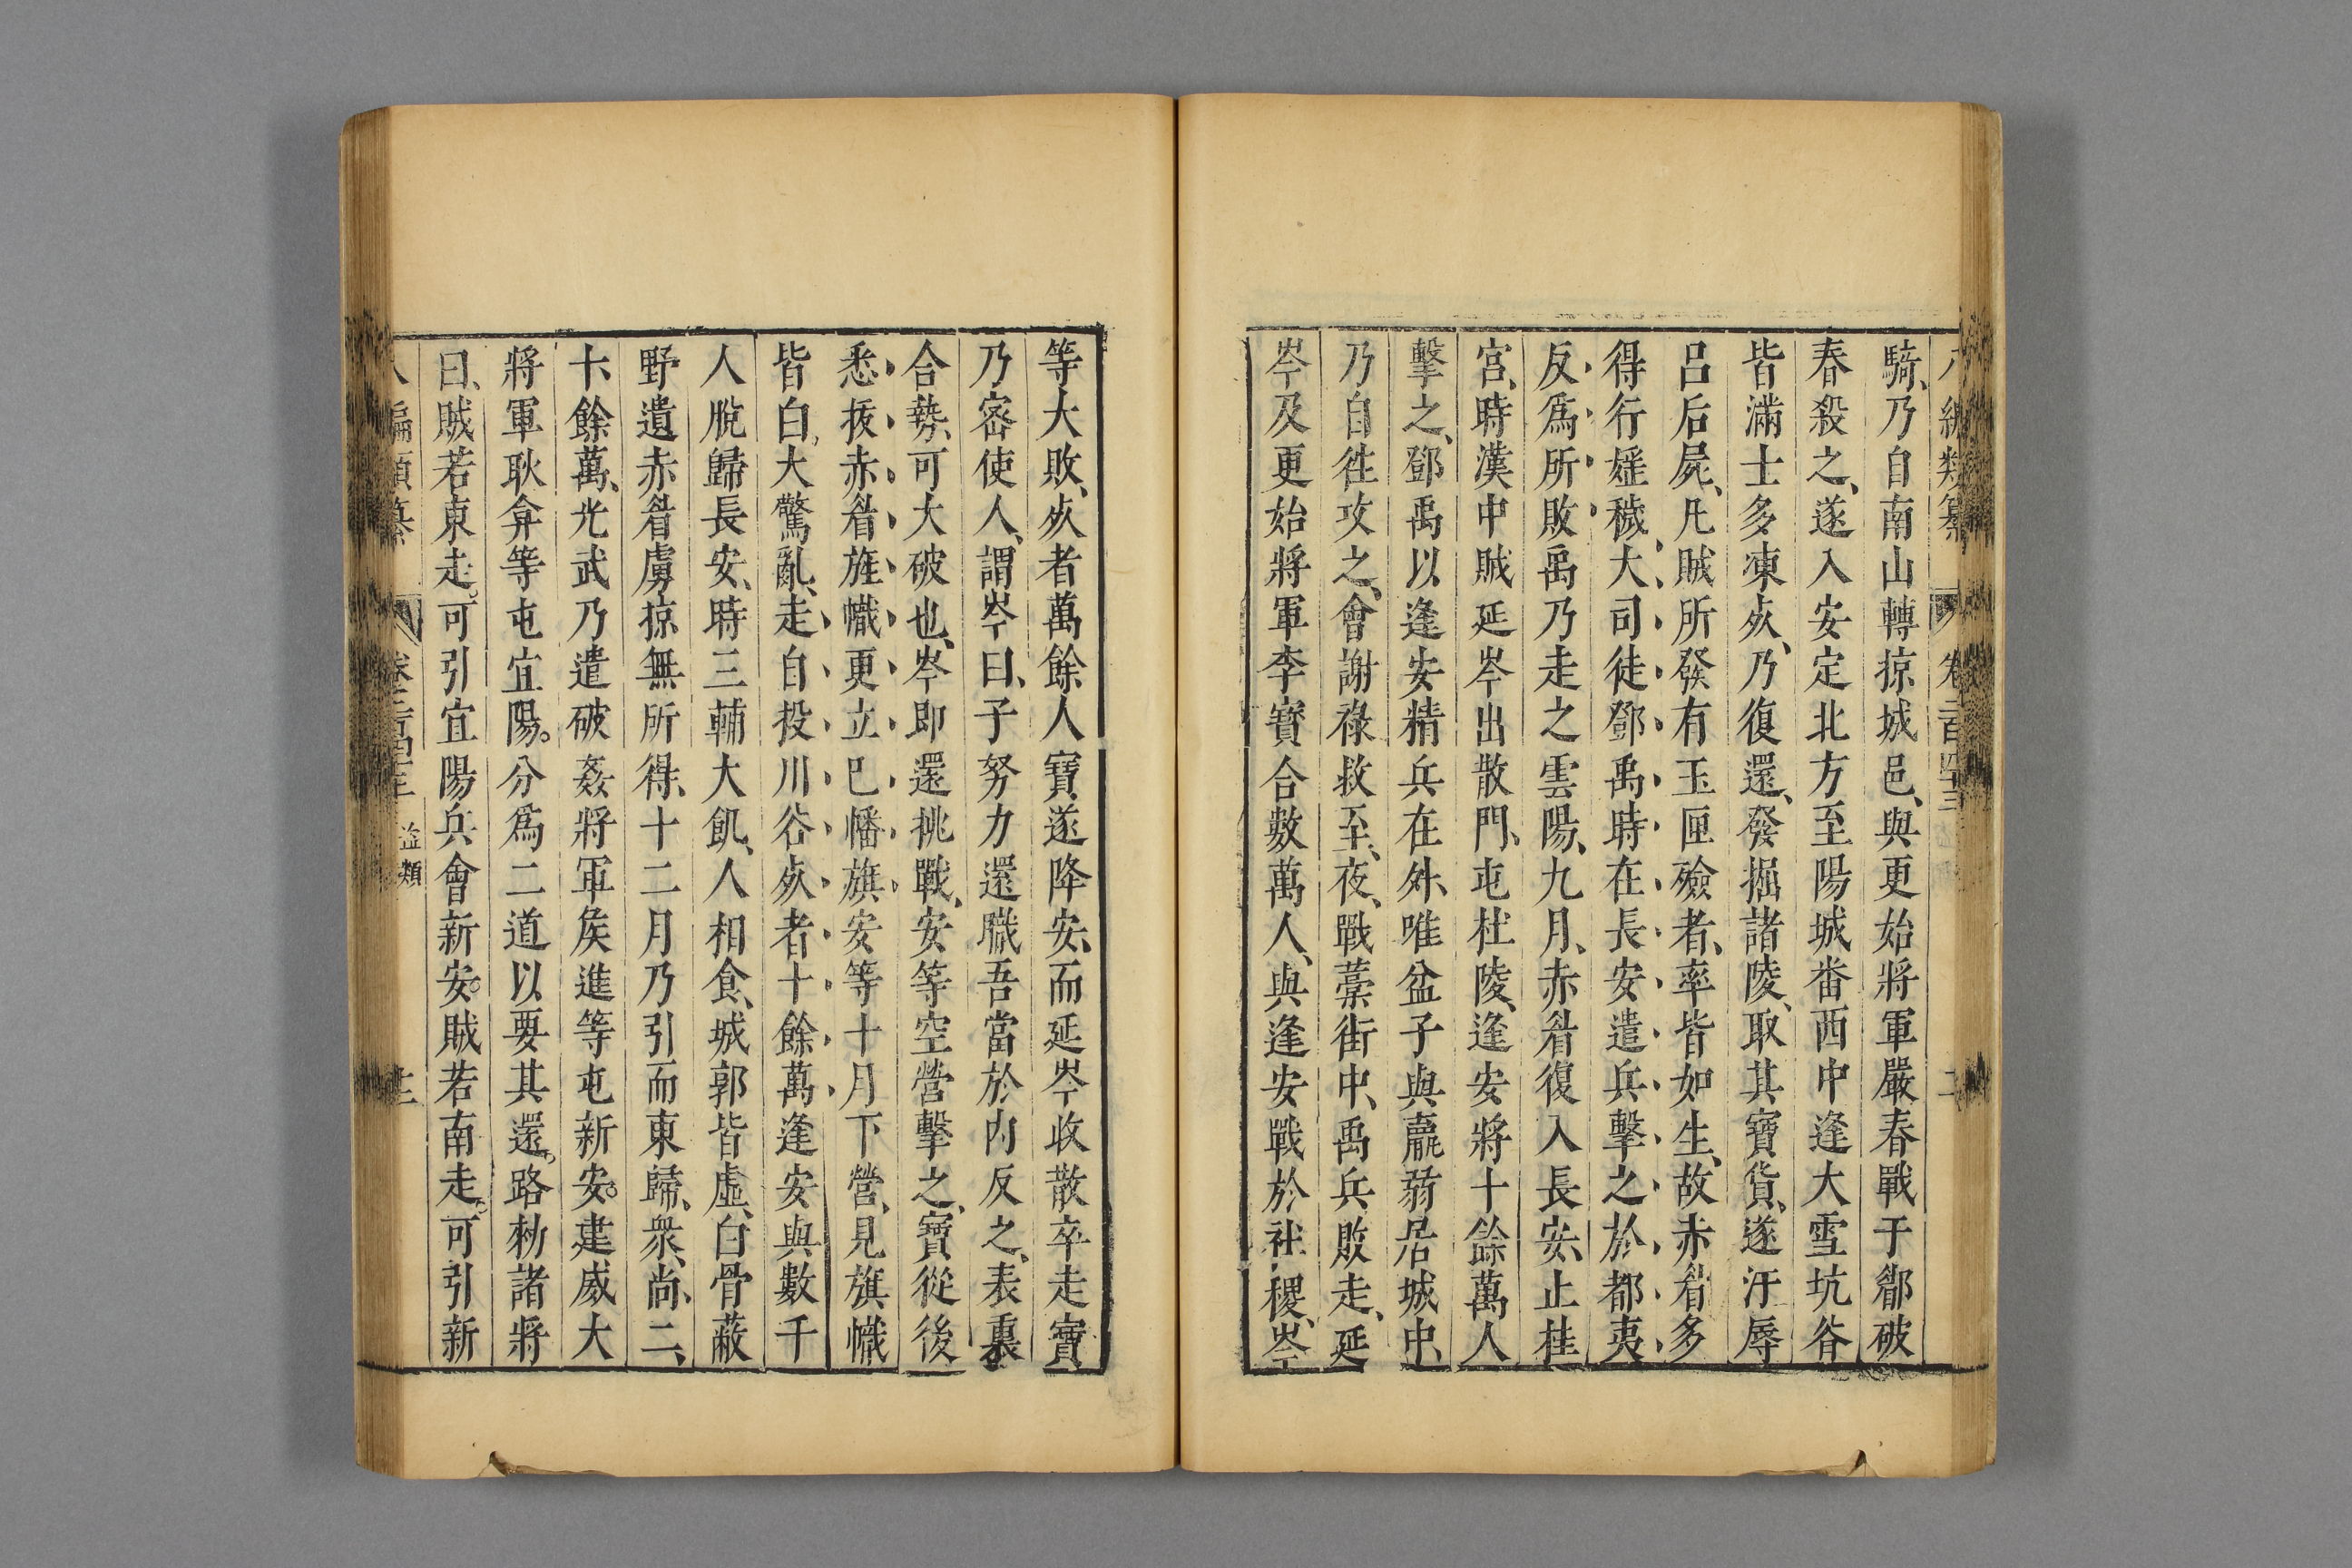 騎、乃自南山轉掠城邑、與更始將軍嚴春戰于鄃破
春殺之、遂入安定北方至陽城畨西中逢大雪坑谷
皆滿士多凍歺、乃復還、發掘諸陵、取其寶貨、遂汙辱
呂后屍、凡賊所發有玉匣殮者、率皆如生、故赤眉多
得行婬穢、大司徒鄧禹時在長安遣兵擊之於郁夷
反爲所敗禹乃走之雲陽、九月、赤眉復入長安、止桂
宮、時漢中賊延岑出散門、屯杜陵、逢安將十餘萬人
擊之、鄧禹以逢安精兵在外、唯盆子與羸弱居城中、
乃自徃攻之、會謝祿救至、夜、戰藁街中、禹兵敗走、延
岑及更始將軍李寶合數萬人、與逢安戰於社稷、岑
等大敗、歺者萬餘人寶遂降安、而延岑收散卒走寶
乃密使人、謂岑曰、子努力還職吾當於内反之、表裏
合勢、可大破也、岑即還挑戰、安等空營擊之、寶從後
悉拔赤眉旌幟更立巳幡旗安等十月下營、見旗幟
皆白、大驚亂、走自投川谷歺者十餘萬逢安與數千
人脫歸長安、時三輔大飢、人相食、城郭皆虛、白骨蔽
野遺赤眉虜掠無所得、十二月乃引而東歸、衆、尚二、
十餘萬、光武乃遣破姦將軍矦進等屯新安。建威大
將軍耿弇等屯宜陽。分爲二道以要其還。路勑諸將
曰、賊若東走。可引宜陽兵會新安。賊若南走。可引新
編類纂 卷二百四十三 盜類 十二